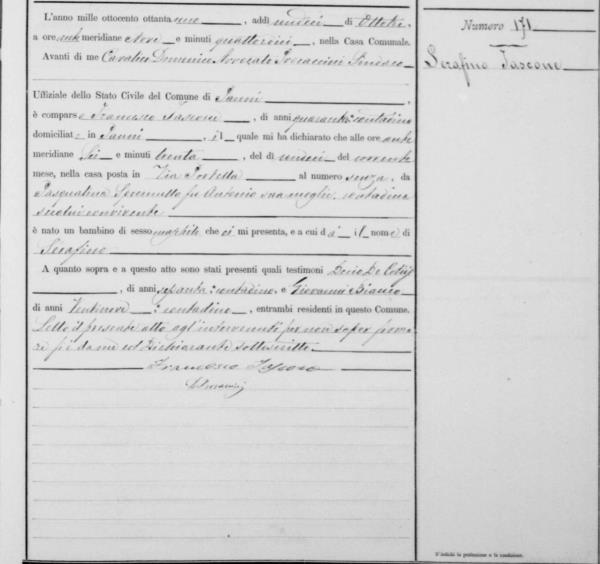 L'anno mille ottocento ottantauno, addì undici di Ottobre,
a ore ante meridiane Nove e minuti quattordici, nella Casa Comunale.
Avanti di me Cavalier Domenico Avvocato Procaccini Sindaco
Uffiziale dello Stato Civile del Comune di Panni,
è comparso Francesco Tascone, di anni quaranta: contadino
domiciliato in Panni, il quale mi ha dichiarato che alle ore ante
meridiane Sei e minuti trenta, del dì undici del corrente
mese, nella casa posta in Via Portella al numero senza, da
Pasqualina fu Antonio sua moglie, contadina
seco lui convivente
è nato un bambino di sesso maschile che ei mi presenta, e a cui dà il nome di
Serafino
A quanto sopra e a questo atto sono stati presenti quali testimoni
, di anni settanta: contadino, e Giovanni Bianco
di anni Ventinove: contadino, entrambi residenti in questo Comune.
Letto il presente atto agl'intervenuti per non saper firma-
re si è da me ed Dichiarante sottoscritto
Francesco Tascone
D Procaccini
Numero 171
Serafino Tascone
S'indichi la professione o la condizione.